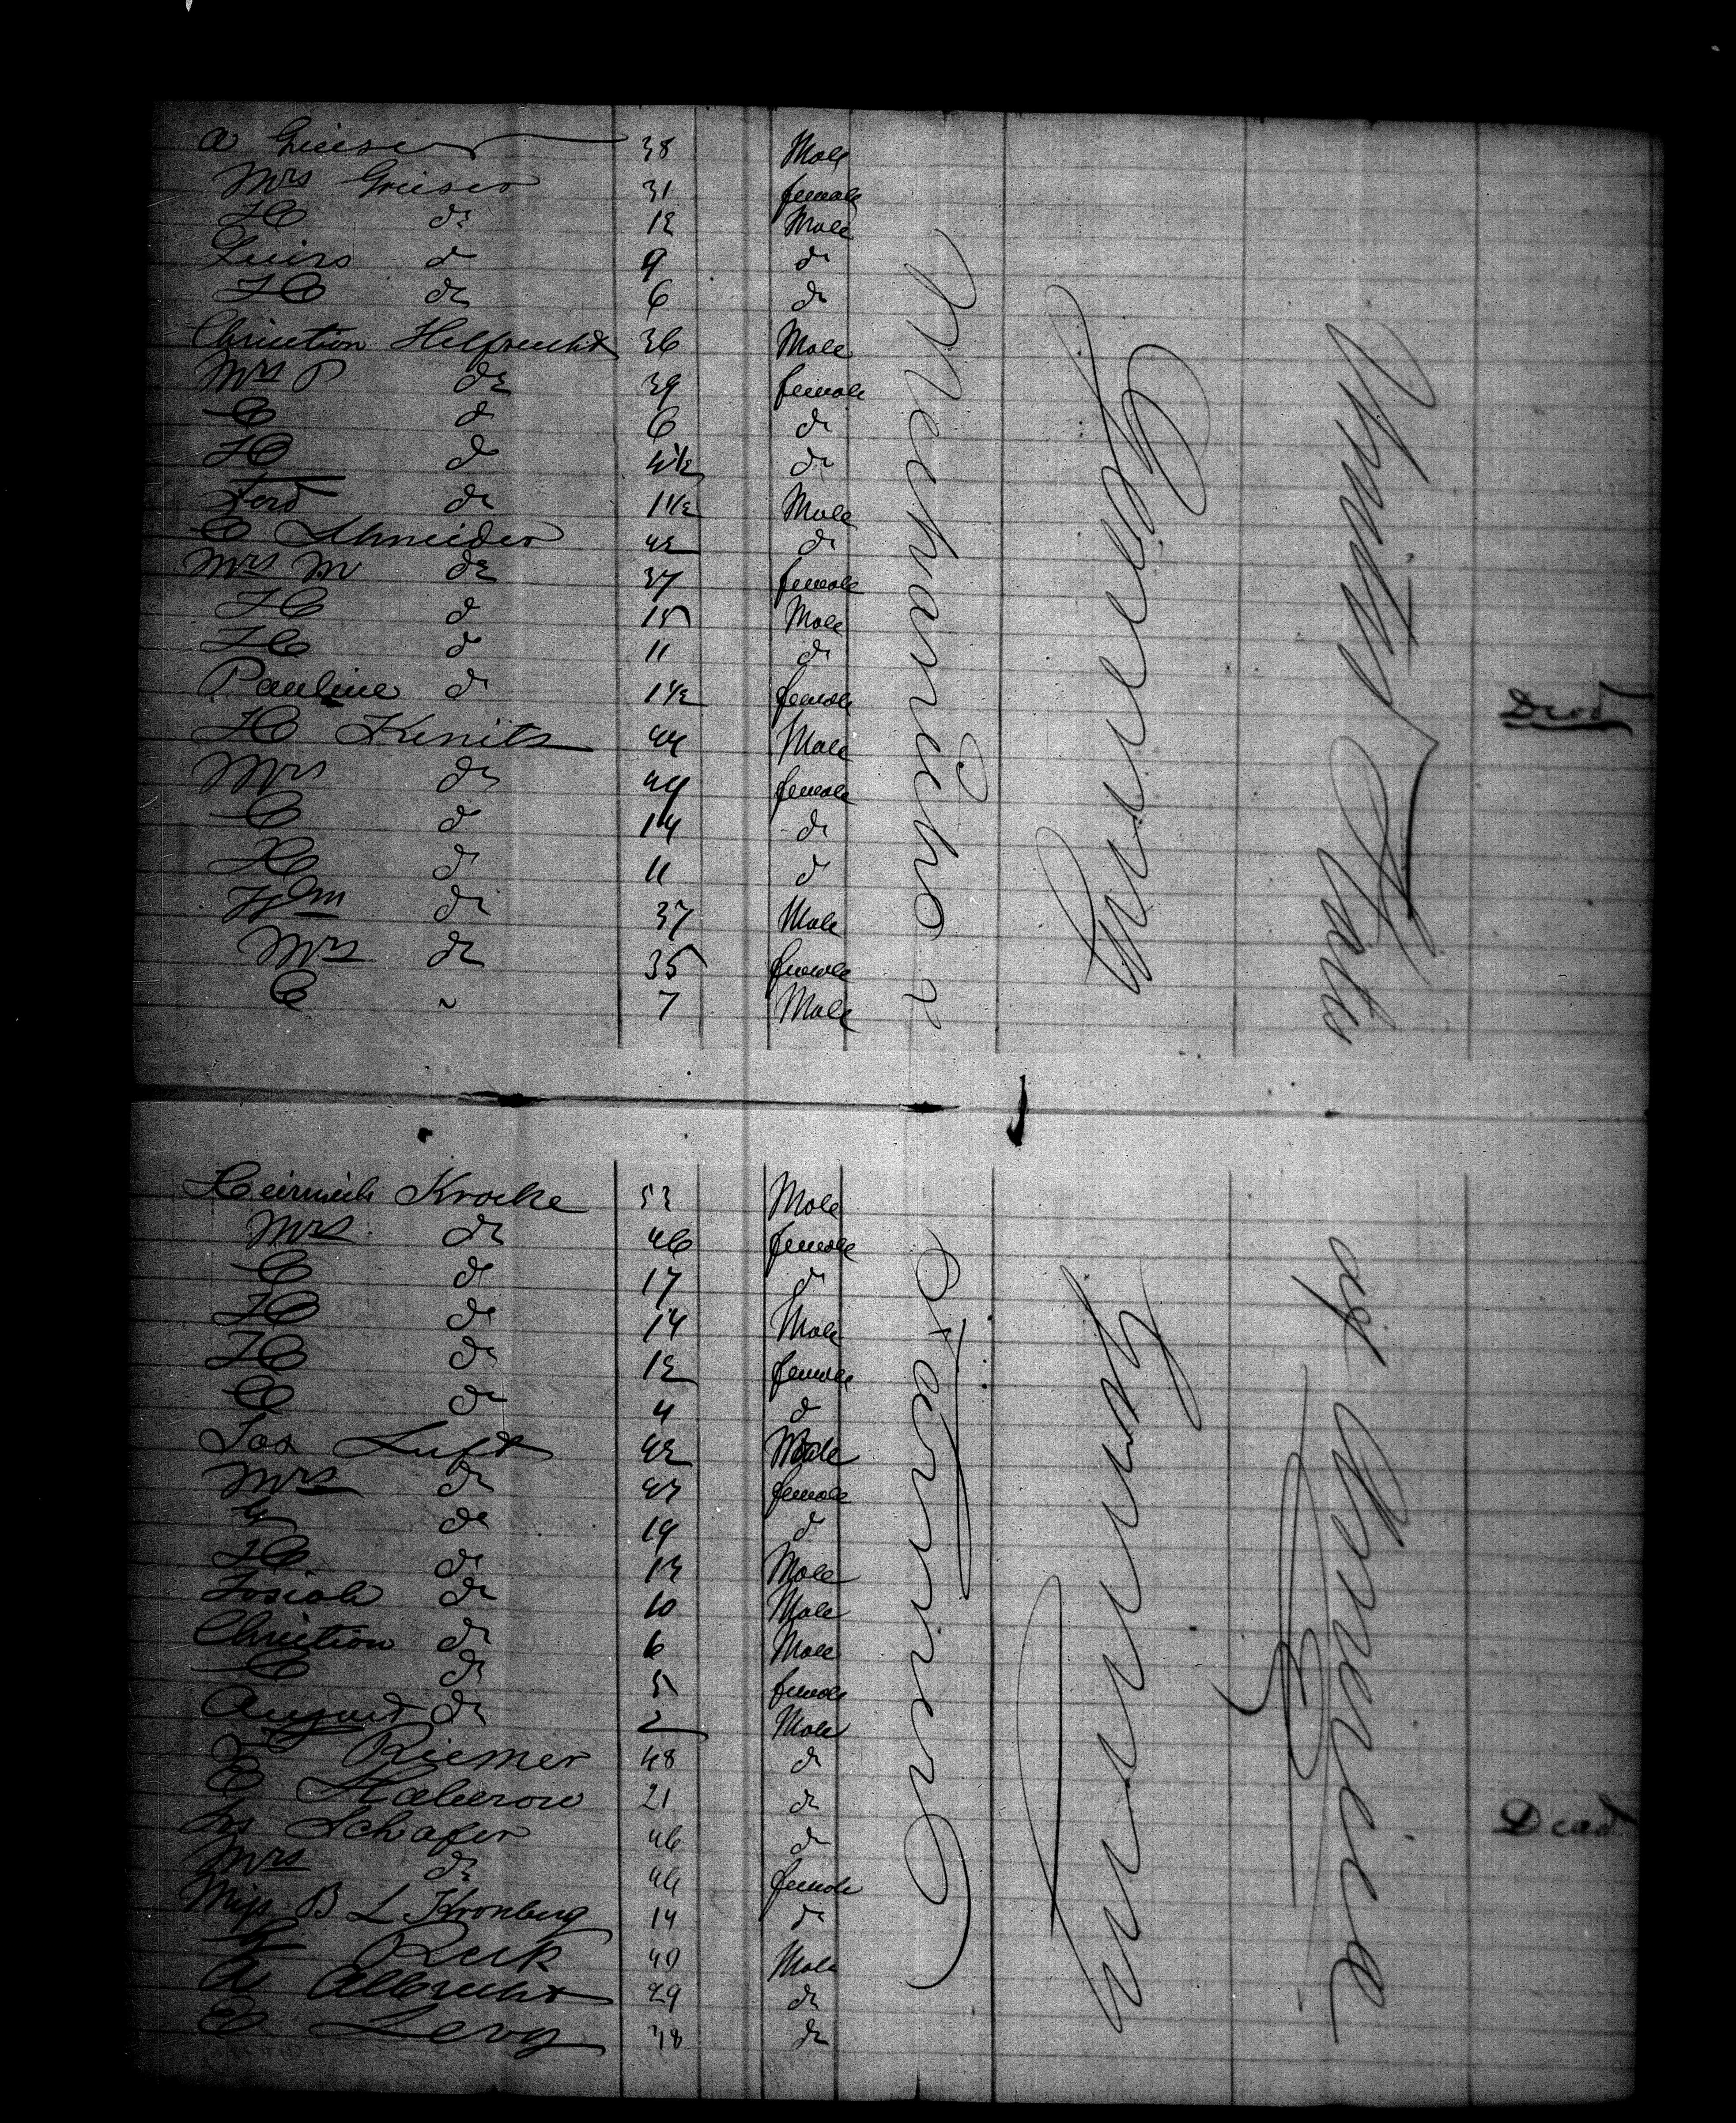 A Grieser 38 Male
Mrs Grieser 31 female
H do 12 Male
Louis do 9 do
H do 6 do
Christian Helfrecht 36 Male
Mrs P do 39 female
C do 6 do
H do 4 1/2 do
Ferd do 1 1/2 Male
C Schneider 42 do
Mrs M do 37 female
H do 15 Male
H do 11 do
Pauline do 1 1/2 female Dead
H Kenitz 44 Male
Mrs do 44 female
C do 14 do
H do 11 do
Wm do 37 Male
Mrs do 35 female
C " 7 Male
Mechanicks &
Germany
United States
Heinrich Kracke 53 Male
Mrs do 46 female
C do 17 do
H do 14 Male
H do 12 female
C do 4 do
Jos Luft 42 Male
Mrs do 43 female
G do 19 do
H do 13 Male
Josiah do 10 Male
Christian do 6 Male
C do 5 female
August do 2 Male
Riemer 48 do
E Haberow 21 do
Jos Schafer 46 do Dead
Mrs do 46 female
Miss B L Kronberg 14 do
Reck 40 Male
A Albrecht 29 do
E Levy 38 do
Germany
of America